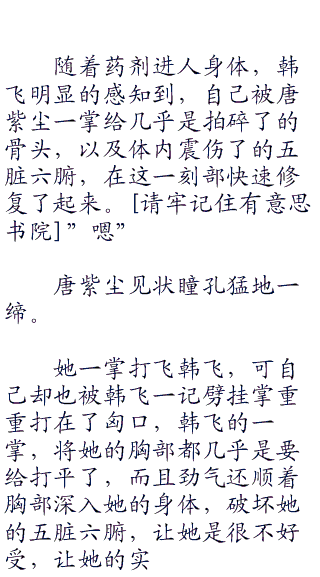 随着药剂进人身体，韩
飞明显的感知到，自己被唐
紫尘一掌给几乎是拍碎了的
骨头，以及体内震伤了的五
脏六腑，在这一刻部快速修
复了起来。[请牢记住有意思
书院]”嗯”
唐紫尘见状瞳孔猛地一
缔。
她一掌打飞韩飞，可自
己却也被韩飞一记劈挂掌重
重打在了匈口，韩飞的一
掌，将她的胸部都几乎是要
给打平了，而且劲气还顺着
胸部深入她的身体，破坏她
的五脏六腑，让她是很不好
受，让她的实